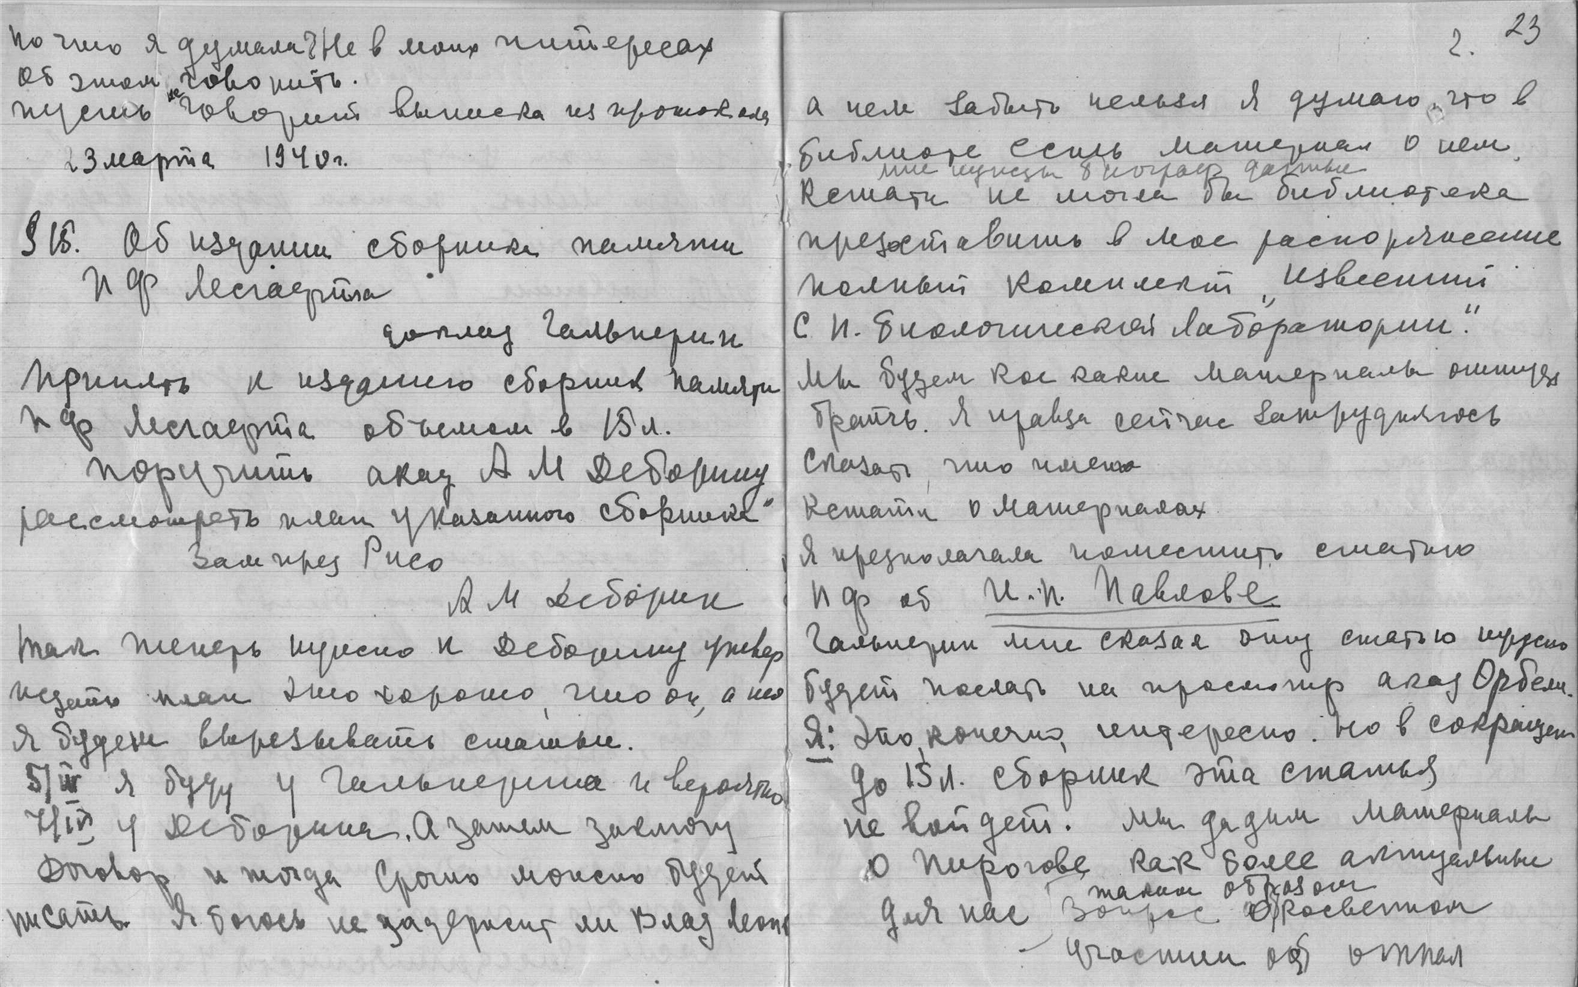 но что я думала? Не в моих интересах
об этом говорить.
пусть не говорит выписка из протокола
23 марта 1940 г.
§ 15. Об издании сборника памяти
П Ф Лесгафта
доклад Гальперин
Принять к изданию сборник памяти
П Ф Лесгафта объемом в 15 л.
поручить акад А М Деборину
рассмотреть план указанного сборника"
Зам пред Рисо
А М Деборин
так теперь нужно к Деборину утвер
ждать план это хорошо, что он, а не
я будем вырезывать статьи.
5/IV я буду у Гальперина и вероятно
7/IV у Деборина. А затем заключу
Договор и тогда срочно можно будет
писать. Я боюсь не задержит ли Влад Леон
23
2.
а нем забыть нельзя Я думаю, что в
библиоте есть материал о нем.
мне нужны биограф данные
Кстати не могла бы библиотека
предоставить в мое распоряжение
полный комплект „Известий
С П. Биологической Лаборатории".
Мы будем кое какие материалы оттуда
брать. Я правда сейчас затрудняюсь
сказать, что именно
Кстати о материалах
Я предполагала поместить статью
П Ф об И. П. Павлове.
Гальперин мне сказал эту статью нужно
будет послать на просмотр акад Орбели.
Я: Это, конечно, интересно. Но в сокращен
до 15 л. сборник эта статья
не войдет. Мы дадим материалы
о Пирогове как более актуальные
таким образом
для нас Вопрос о косвенном
участии отпал